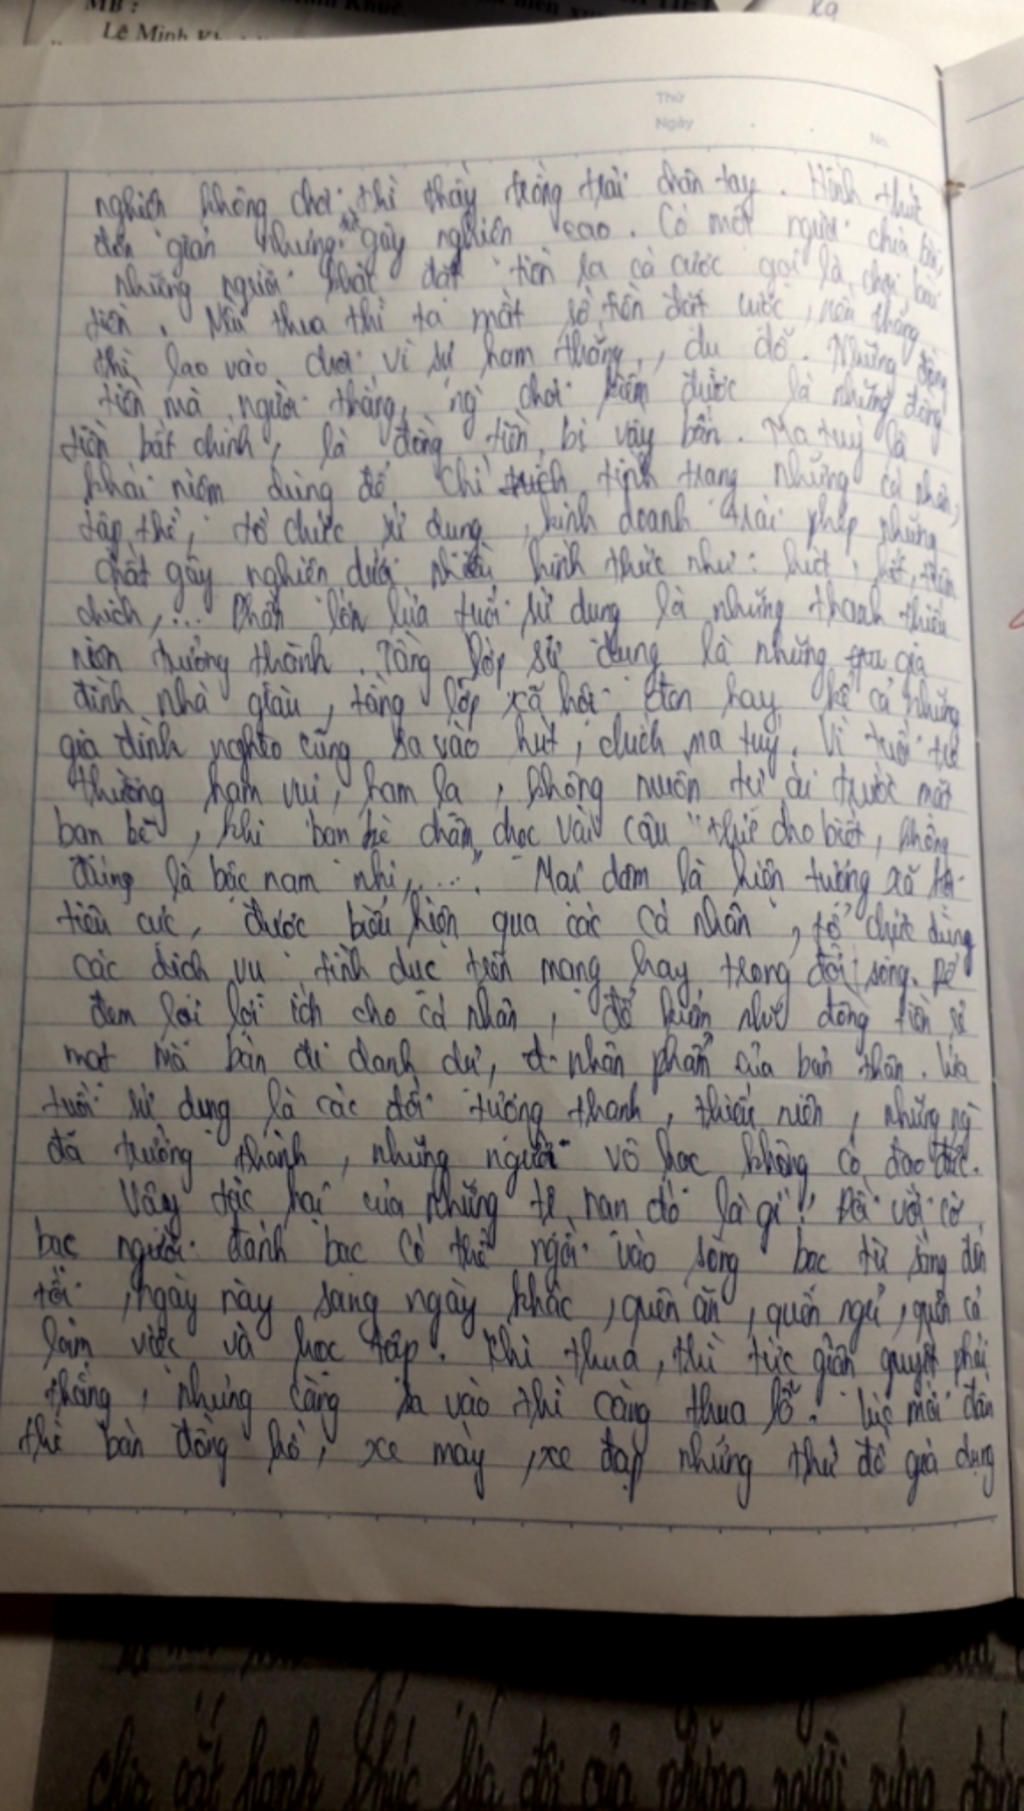 MB :
Lê Minh Kh
Thứ
Ngày
No.
nghiện không chơi thì thấy trống trải chân tay. Hình thức
đơn giản nhưng gây nghiện cao. Có một người chia bài,
những người khác đặt tiền ra cá cược gọi là chơi bài
tiền. Nếu thua thì ta mất số tiền đặt cược, nếu thắng
thì lao vào chơi vì sự ham thắng, dụ dỗ. Những đồng
tiền mà người thắng, ng chơi kiếm được là những đồng
tiền bất chính, là đồng tiền bị vấy bẩn. Ma tuý là
khái niệm dùng để chỉ tình trạng những cá nhân,
tập thể, tổ chức sử dụng, kinh doanh trái phép những
chất gây nghiện dưới nhiều hình thức như: hút, hít, tiêm
chích,... Phần lớn lứa tuổi sử dụng là những thanh thiếu
niên trưởng thành. Tầng lớp sử dụng là những gia
đình nhà giàu, tầng lớp xã hội đen hay kể cả những
gia đình nghèo cũng sa vào hút, chích ma tuý. Vì tuổi trẻ
thường ham vui, ham lạ, không muốn tự ái trước mặt
bạn bè, khi bạn bè châm chọc vài câu "thử cho biết, không
đúng là bậc nam nhi,....". Mại dâm là hiện tượng xã hội
tiêu cực, được biểu hiện qua các cá nhân, tổ chức dùng
các dịch vụ tình dục trên mạng hay trong đời sống. Để
đem lại lợi ích cho cá nhân, để kiếm những đồng tiền rẻ
mạt mà bán đi danh dự, nhân phẩm của bản thân. Lứa
tuổi sử dụng là các đối tượng thanh, thiếu niên, những ng
đã trưởng thành, những người vô học không có đạo đức.
Vậy tác hại của những tệ nạn đó là gì? Đối với cờ
bạc người đánh bạc có thể ngồi vào sòng bạc từ sáng đến
tối, ngày này sang ngày khác, quên ăn, quên ngủ, quên cả
làm việc và học tập. Khi thua, thì tức giận quyết phải
thắng, nhưng càng sa vào thì càng thua lỗ. Lúc mới đầu
thì bán đồng hồ, xe máy, xe đạp những thứ đồ gia dụng
hạnh phúc của những người